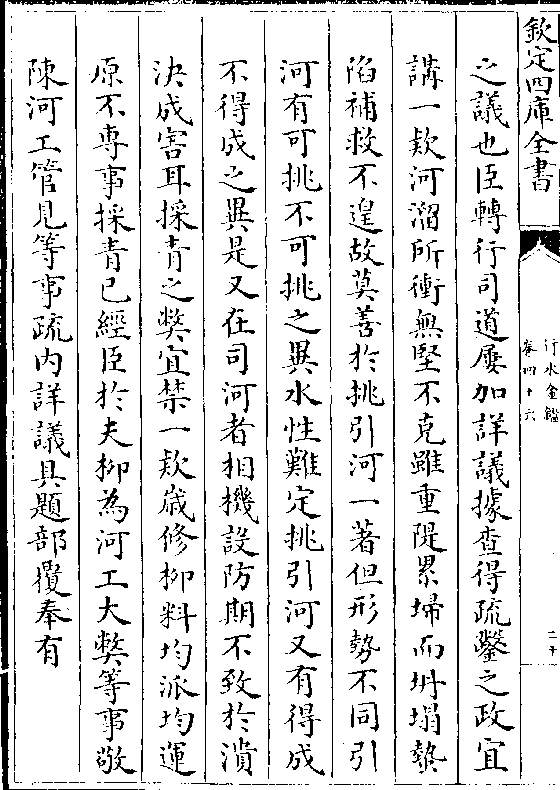 欽定四庫全書
行水金鑑
卷四十六
二十
之議也臣轉行司道屢加詳議據查得疏鑿之政宜
講一款河溜所衝無堅不克雖重隄累埽而坍塌墊
陷補救不遑故莫善於挑引河一著但形勢不同引
河有可挑不可挑之異水性難定挑引河又有得成
不得成之異是又在司河者相機設防期不致於潰
決成害耳採青之弊宜禁一款歲修柳料均派均運
原不專事採青已經臣於夫柳為河工大弊等事敬
陳河工管見等事疏內詳議具題部覆奉有